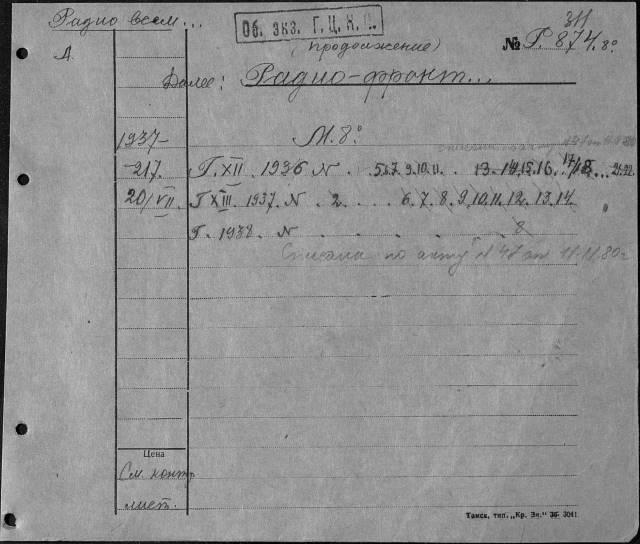 Радио всем...
Об. экз. Г.Ц.К.П.
311
(продолжение)
№ Р.874.8°
А.
Далее: Радио-фронт...
1937-
М. 8°
-217. Г. XII 1936 N . 5.6.7. 9.10.11. .. 13.14.15.16. 17/18... 21.22.
20/VII. Г XIII. 1937. N . 2. . . . 6.7.8.9.10.11.12.13.14
Г. 1938. N . . . . . . 8
Списаны по акту N 47 от 11.11.80г.
Цена
См. контр
лист.
Томск, тип. „Кр. Зн." 36- 3041